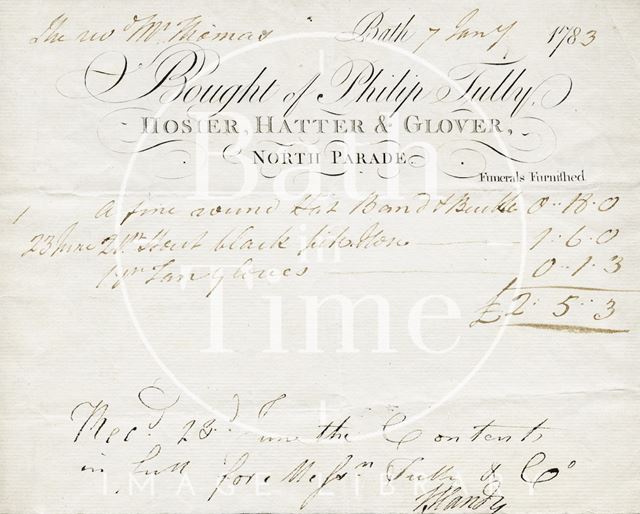 The revd Mr Thomas Bath 7 Jany 1783
Bought of Philip Tully,
HOSIER, HATTER & GLOVER,
NORTH PARADE.
Funerals Furnished
1 a fine round Hat Band & Buckle 0..18..0
23 June 2 pr Stout black silk Hose 1..6..0
1 pr Tan gloves 0..1..3
£2..5..3
Recd 23d June the Contents
in full for Messrs Tully & Co
Bath in Time
IMAGE LIBRARY